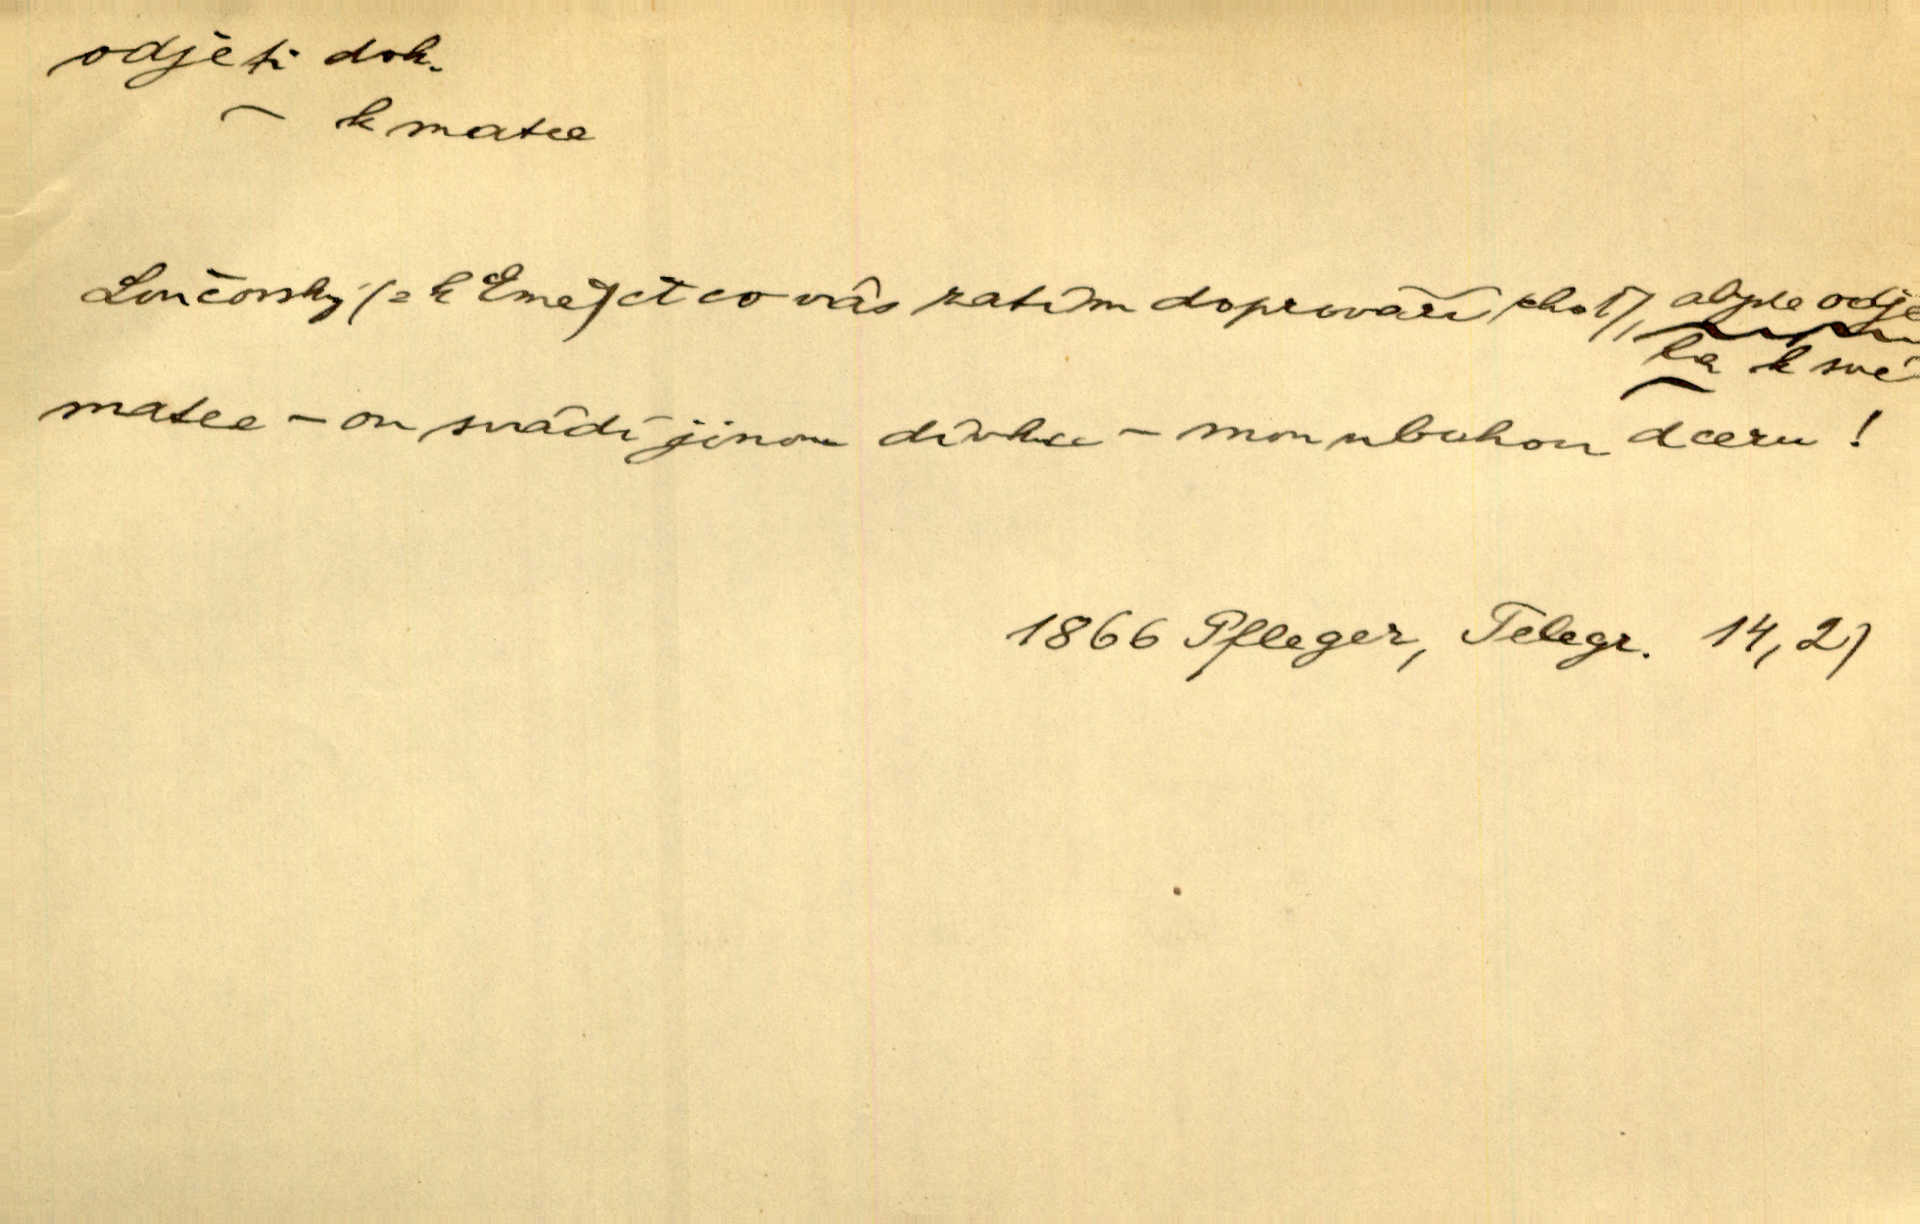 odjeti dok.
— k matce
Lončovský (= k Eme) ct co vás zatím doprovází choť, abyste odje
la k své
matce – on svádí jinou dívku – mou ubohou dceru!
1866 Pfleger, Telegr. 14, 2)